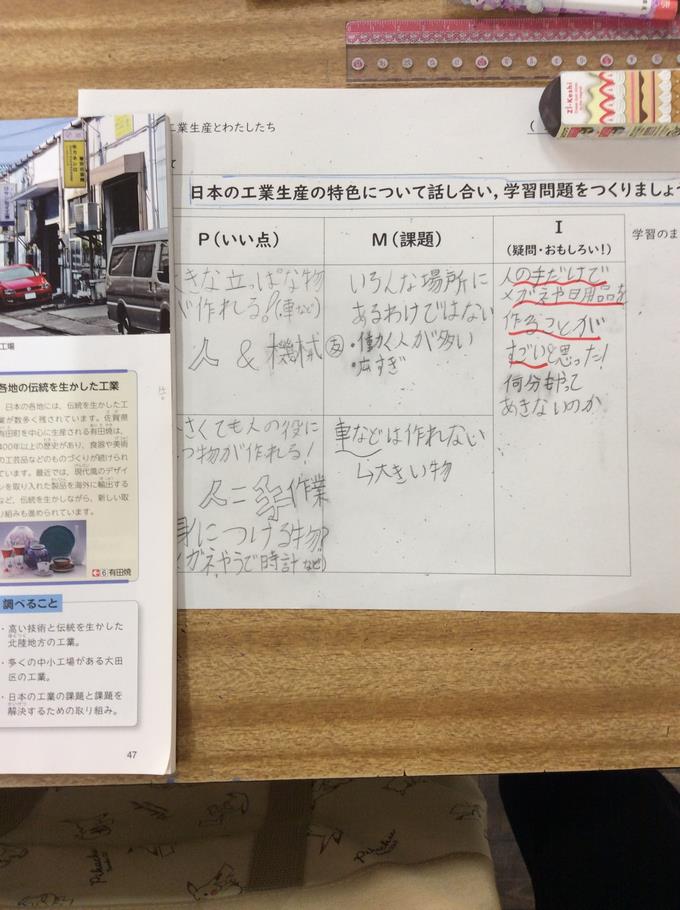 工業生産とわたしたち
日本の工業生産の特色について話し合い，学習問題をつくりましょ
P(いい点)
M(課題)
I
(疑問・おもしろい！)
学習のま
きな立っぱな物
が作れる。(車など)
人 & 機械
いろんな場所に
あるわけではない
・働く人が多い
・広すぎ
人の手だけで
メガネや日用品を
作ることが
すごいと思った！
何分もやって
あきないのか
さくても人の役に
つ物が作れる！
人=手作業
身につける物
ガネ、やうで時計など)
車などは作れない
↳大きい物
工場
各地の伝統を生かした工業
日本の各地には，伝統を生かした工
業が数多く残されています。佐賀県
有田町を中心に生産される有田焼は，
400年以上の歴史があり，食器や美術
の工芸品などのものづくりが続けられ
ています。最近では，現代風のデザイ
ンを取り入れた製品を海外に輸出する
など，伝統を生かしながら，新しい取
り組みも進められています。
6 有田焼
調べること
・高い技術と伝統を生かした
北陸地方の工業。
・多くの中小工場がある大田
区の工業。
・日本の工業の課題と課題を
解決するための取り組み。
47
Zi-Keshi
Pikachu
Pikachu